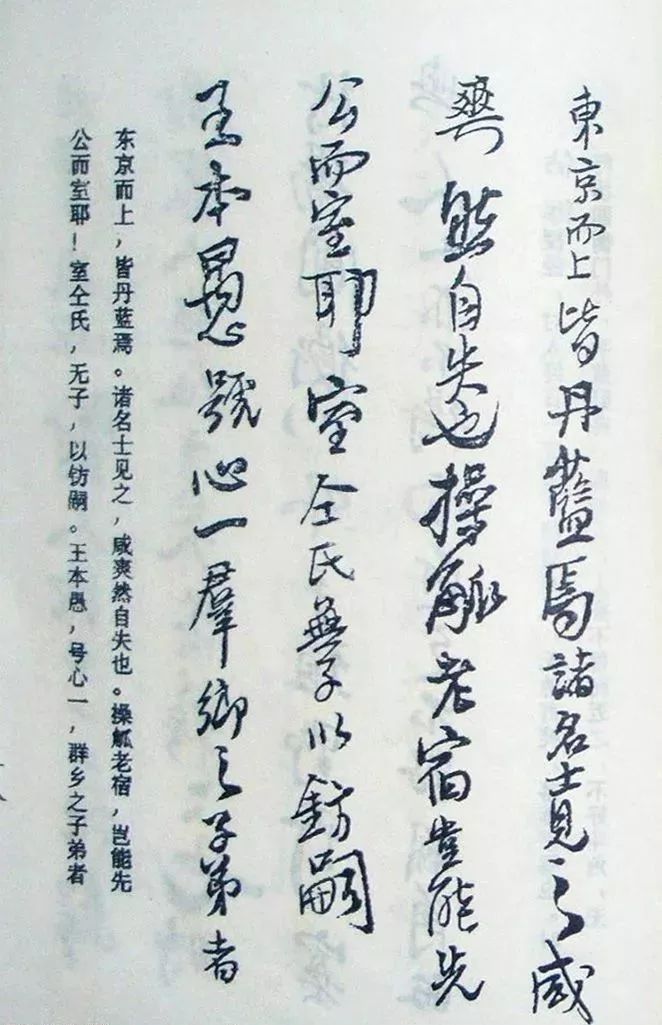 東京而上皆丹藍焉諸名士見之咸
爽然自失也操觚老宿豈能先
公而室耶室仝氏無子以鈁嗣
王本愚號心一羣鄉之子弟者
东京而上，皆丹蓝焉。诸名士见之，咸爽然自失也。操觚老宿，岂能先
公而室耶！室仝氏，无子，以钫嗣。王本愚，号心一，群乡之子弟者